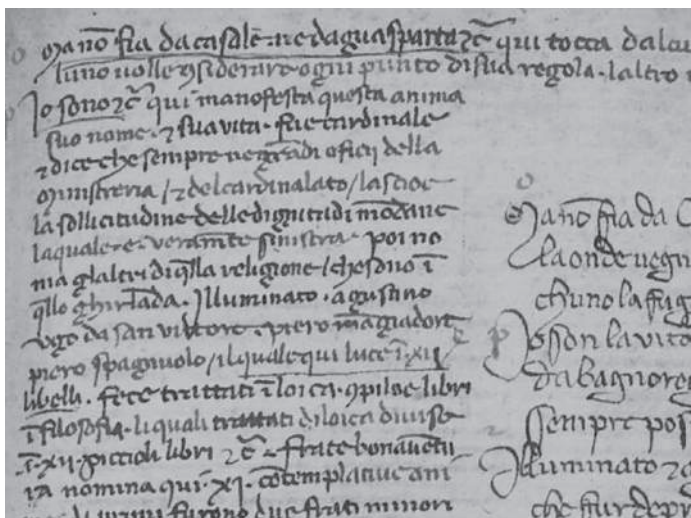 Ma nō fia da casalē ne dagua sparta ⁊c̄ qui tocca dalcu
luno uolle ꝯsiderare ogni punto di sua regola · laltro
Io sono ⁊c̄ qui manofesta questa anima
suo nome · ⁊ sua uita · fue cardinale
⁊ dice che sempre ne grādi oficij della
ministreria / ⁊ del cardinalato / lascioe
la sollicitudine delle dignitadi mōdane
laquale · e · veramēte sinistra · poi no
mīa glaltri di q̄lla religione / che sono ī
q̄llo ghirlāda · Illuminato · agustino
vgo da san vittore · piero māgiadore
piero spagnuolo / il quale qui luce ī · xij
libelli · fece trattati ī loica · ꝯpiloe libri
ī filosofia · li quali trattati di loica diuise
ī · xij · piccioli libri ⁊c̄ · frate bonauētu
ra nomina qui · xj · cōtemplatiue ani
furono due frati minori
Ma nō fia da C
la onde uegn
chuno la fug
Io son la uita
da bagnoreg
sempre pos
Illuminato ⁊
che fur de pr